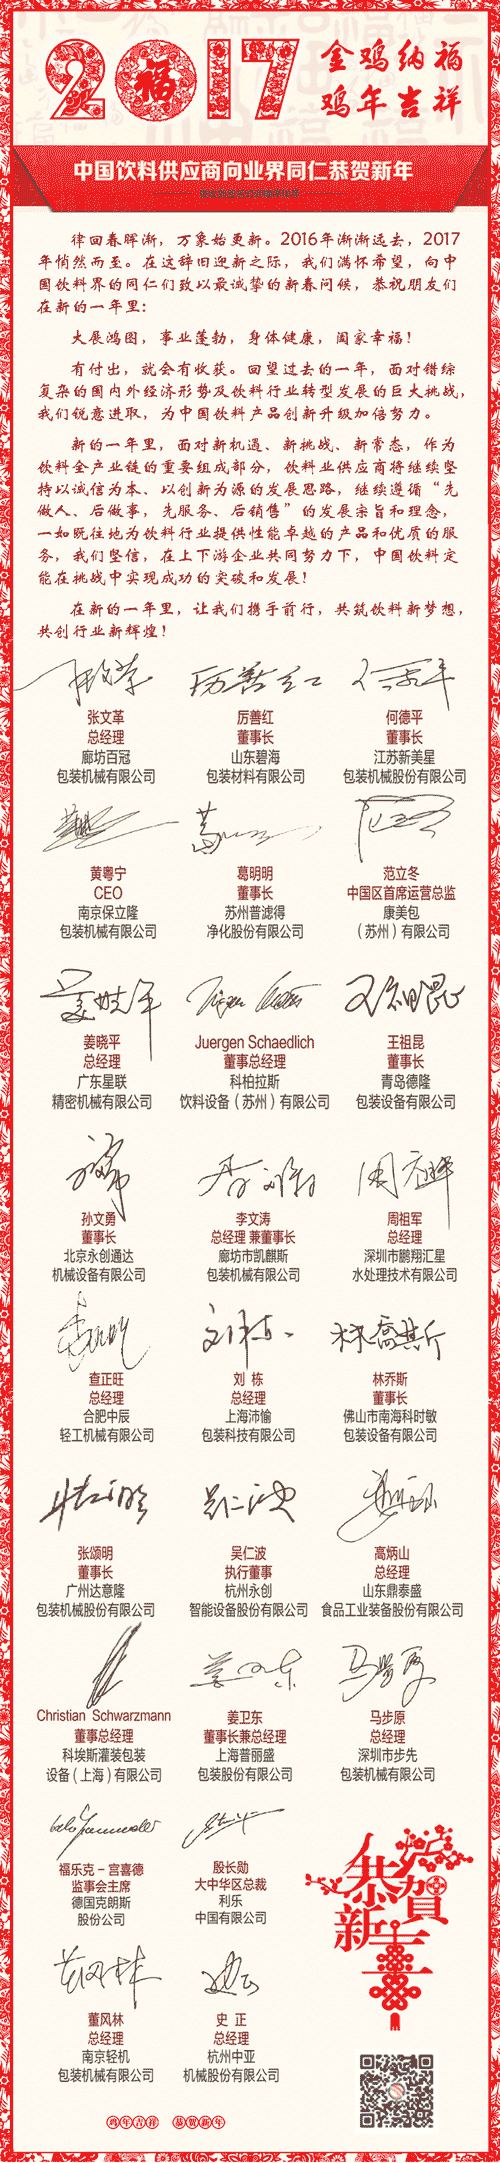 2017
福
金鸡纳福
鸡年吉祥
中国饮料供应商向业界同仁恭贺新年
律回春晖渐，万象始更新。2016年渐渐远去，2017
年悄然而至。在这辞旧迎新之际，我们满怀希望，向中
国饮料界的同仁们致以最诚挚的新春问候，恭祝朋友们
在新的一年里：
大展鸿图，事业蓬勃，身体健康，阖家幸福！
有付出，就会有收获。回望过去的一年，面对错综
复杂的国内外经济形势及饮料行业转型发展的巨大挑战，
我们锐意进取，为中国饮料产品创新升级加倍努力。
新的一年里，面对新机遇、新挑战、新常态，作为
饮料全产业链的重要组成部分，饮料业供应商将继续坚
持以诚信为本、以创新为源的发展思路，继续遵循“先
做人、后做事，先服务、后销售”的发展宗旨和理念，
一如既往地为饮料行业提供性能卓越的产品和优质的服
务，我们坚信，在上下游企业共同努力下，中国饮料定
能在挑战中实现成功的突破和发展！
在新的一年里，让我们携手前行，共筑饮料新梦想，
共创行业新辉煌！
张文革
总经理
廊坊百冠
包装机械有限公司
厉善红
董事长
山东碧海
包装材料有限公司
何德平
董事长
江苏新美星
包装机械股份有限公司
黄粤宁
CEO
南京保立隆
包装机械有限公司
葛明明
董事长
苏州普滤得
净化股份有限公司
范立冬
中国区首席运营总监
康美包
（苏州）有限公司
姜晓平
总经理
广东星联
精密机械有限公司
Juergen Schaedlich
董事总经理
科柏拉斯
饮料设备（苏州）有限公司
王祖昆
董事长
青岛德隆
包装设备有限公司
孙文勇
董事长
北京永创通达
机械设备有限公司
李文涛
总经理 兼董事长
廊坊市凯麒斯
包装机械有限公司
周祖军
总经理
深圳市鹏翔汇星
水处理技术有限公司
查正旺
总经理
合肥中辰
轻工机械有限公司
刘 栋
总经理
上海沛愉
包装科技有限公司
林乔斯
董事长
佛山市南海科时敏
包装设备有限公司
张颂明
董事长
广州达意隆
包装机械股份有限公司
吴仁波
执行董事
杭州永创
智能设备股份有限公司
高炳山
总经理
山东鼎泰盛
食品工业装备股份有限公司
Christian Schwarzmann
董事总经理
科埃斯灌装包装
设备（上海）有限公司
姜卫东
董事长兼总经理
上海普丽盛
包装股份有限公司
马步原
总经理
深圳市步先
包装机械有限公司
福乐克－宫喜德
监事会主席
德国克朗斯
股份公司
殷长勋
大中华区总裁
利乐
中国有限公司
恭贺
新年
董风林
总经理
南京轻机
包装机械有限公司
史 正
总经理
杭州中亚
机械股份有限公司
鸡年吉祥 恭贺新年